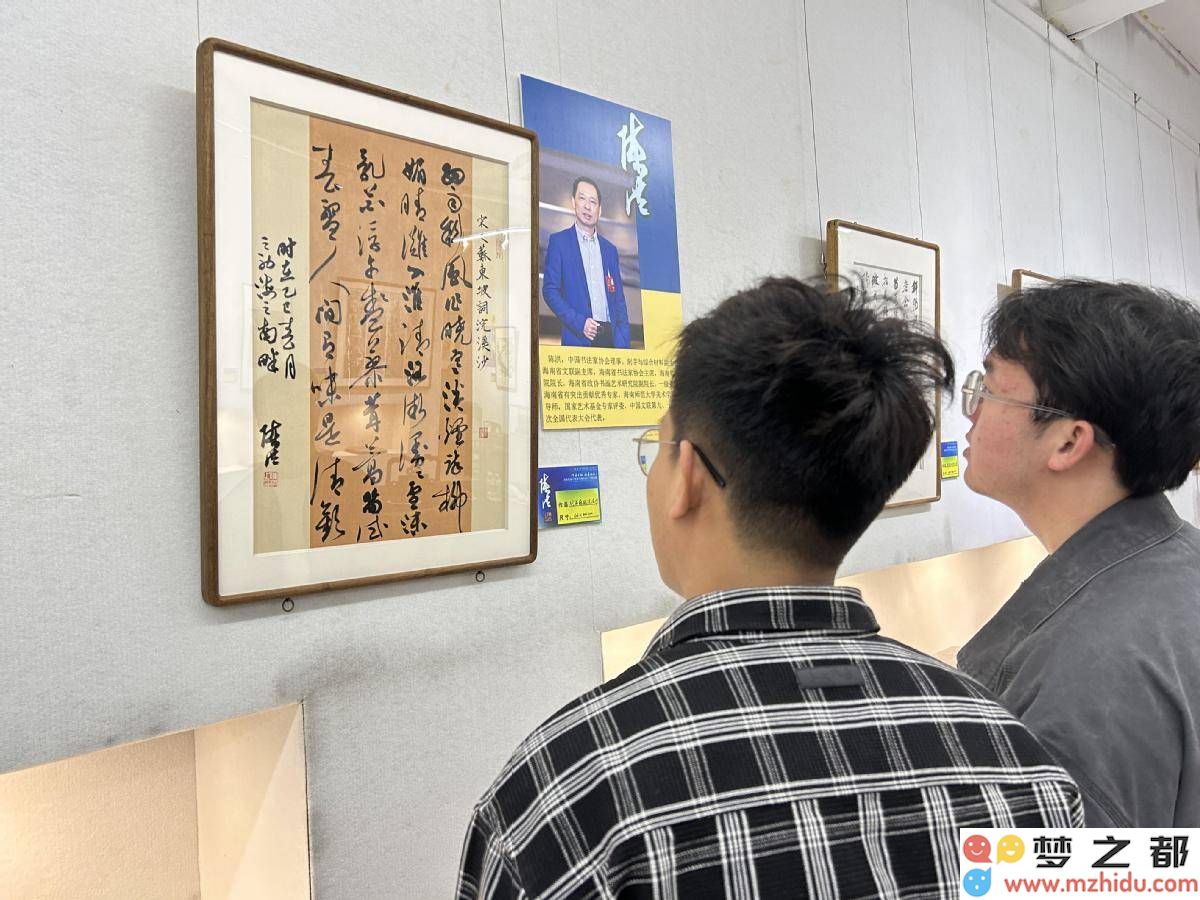 宋人蘇東坡詞浣溪沙
細雨斜風作曉寒淡煙疏柳
媚晴灘入淮清洛漸漫漫雪沫
乳花浮午盞蓼茸蒿筍試
春盤人間有味是清歡
时在乙巳春月
之初海之南畔
陈洪
陈洪
陈洪，中国书法家协会理事，刻字与综合材料
海南省文联副主席，海南省书法家协会主席，海南
院院长，海南省政协书画艺术研究院副院长，一级
海南省有突出贡献优秀专家，海南师范大学美术学
导师，国家艺术基金专家评委，中国文联第九、
次全国代表大会代表。
陈洪
梦之都
www.mzhidu.com